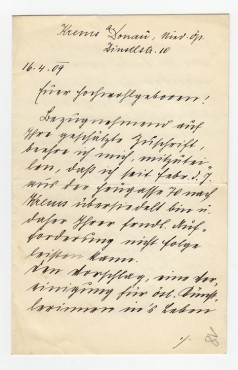 Krems a/Donau, Nied. Öst.
16.4.09
Euer Hochwohlgeboren!
Bezugnehmend auf
Ihre geschätzte Zuschrift,
beehre ich mich, mitzutei-
len, daß ich seit Febr. d. J.
aus der Zeugasse 70 nach
Krems übersiedelt bin u.
daher Ihrer frndl. Auf-
forderung nicht Folge
leisten kann.
Den Vorschlag, eine Ver-
einigung für öst. Künst-
lerinnen in's Leben